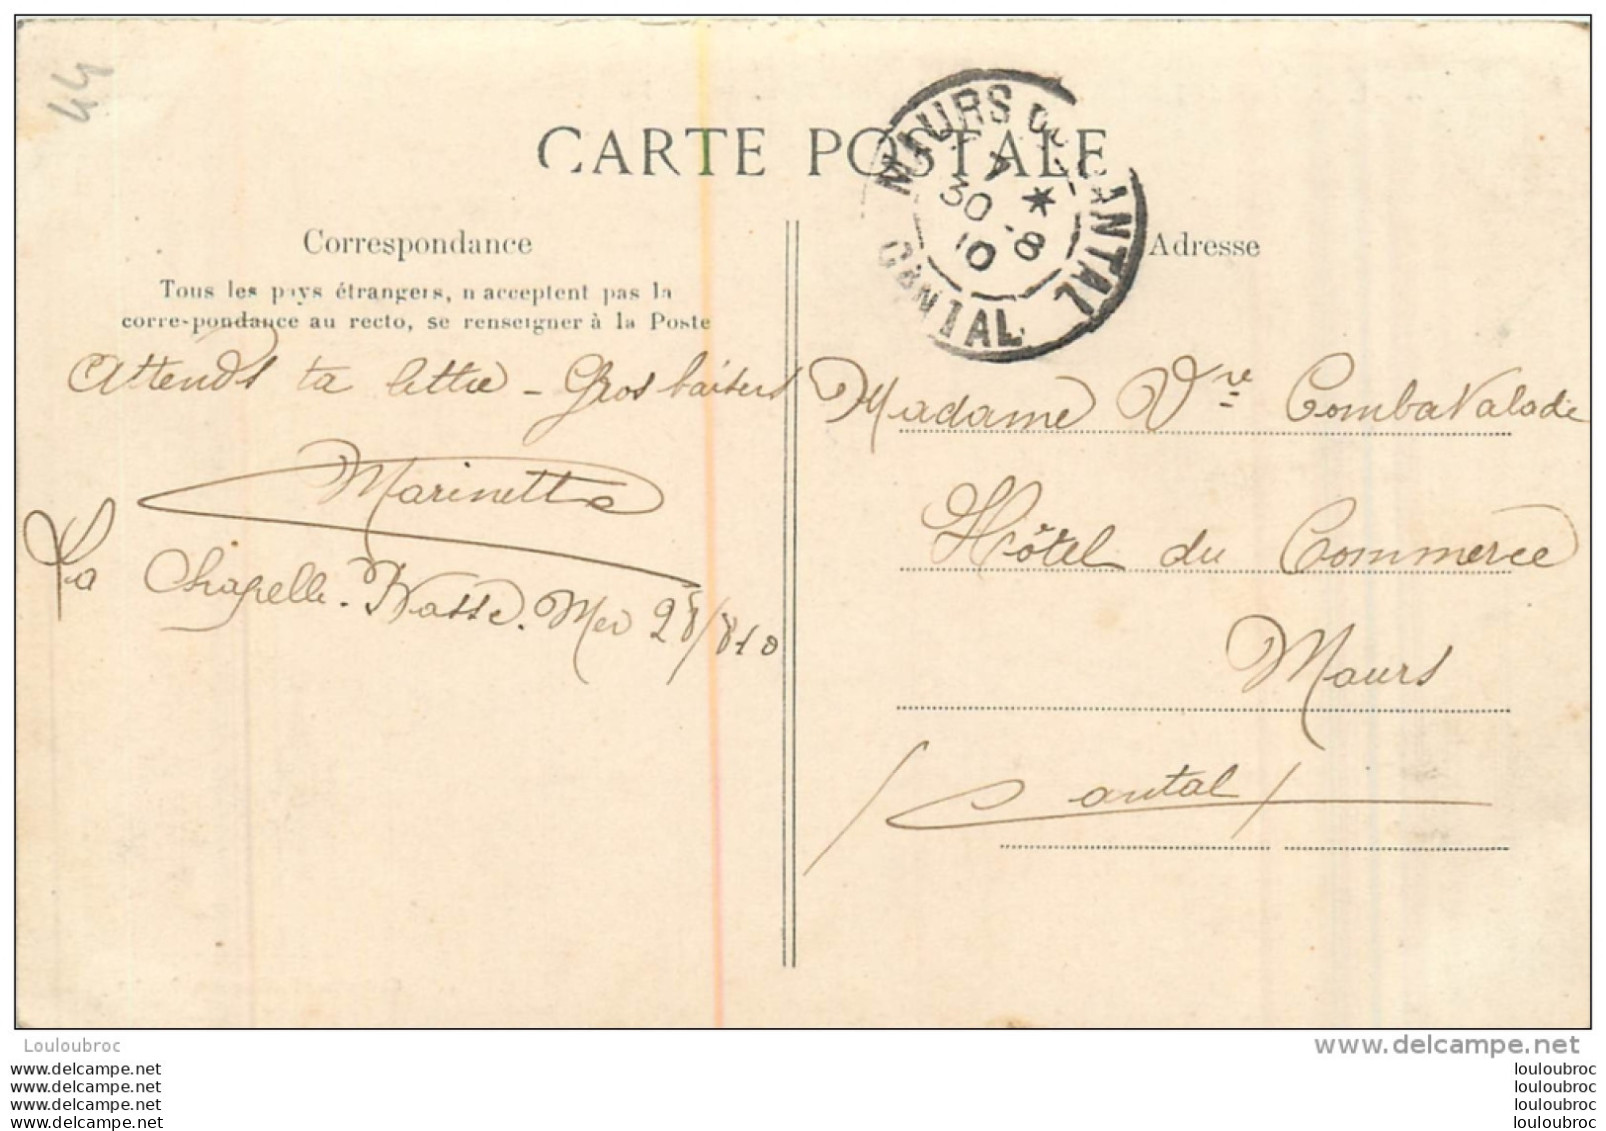 44
CARTE POSTALE
MAURS DU CANTAL
CANTAL
30 - 8
10
Correspondance
Tous les pays étrangers, n'acceptent pas la
correspondance au recto, se renseigner à la Poste
Attends ta lettre - Gros baisers
Marinette
La Chapelle. Basse. Mer 28/8 10
Adresse
Madame Vve CombaValade
Hôtel du Commerce
Maurs
(Cantal)
Louloubroc
www.delcampe.net
www.delcampe.net
www.delcampe.net
www.delcampe.net
www.delcampe.net
louloubroc
louloubroc
louloubroc
louloubroc